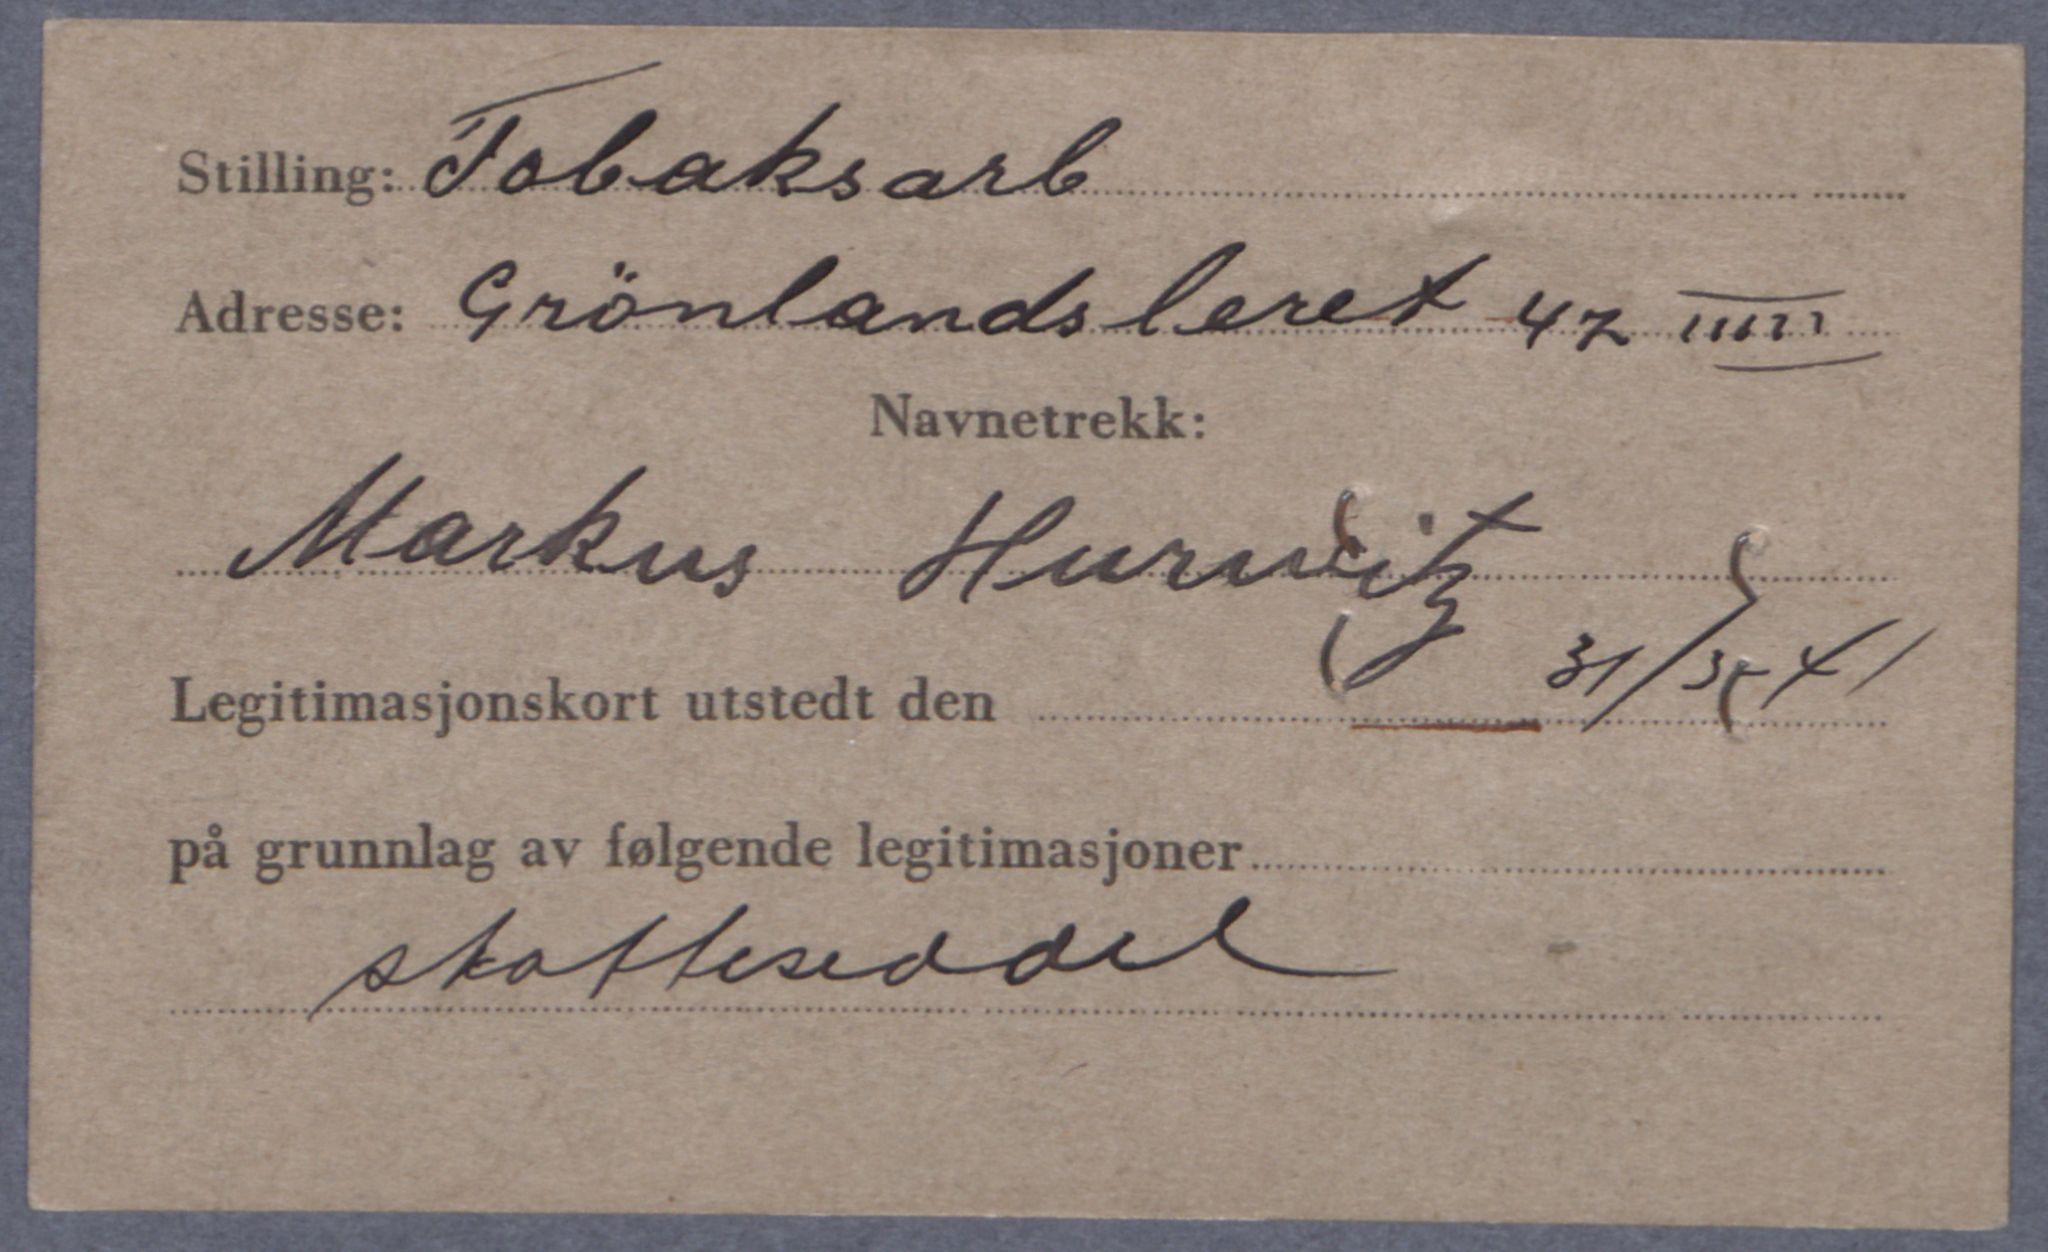 Stilling: Tobaksarb
Adresse: Grönlandsleret 42 IIIII
Navnetrekk:
Markus Hurwitz
Legitimasjonskort utstedt den 31/3-41
på grunnlag av følgende legitimasjoner
skatteseddel